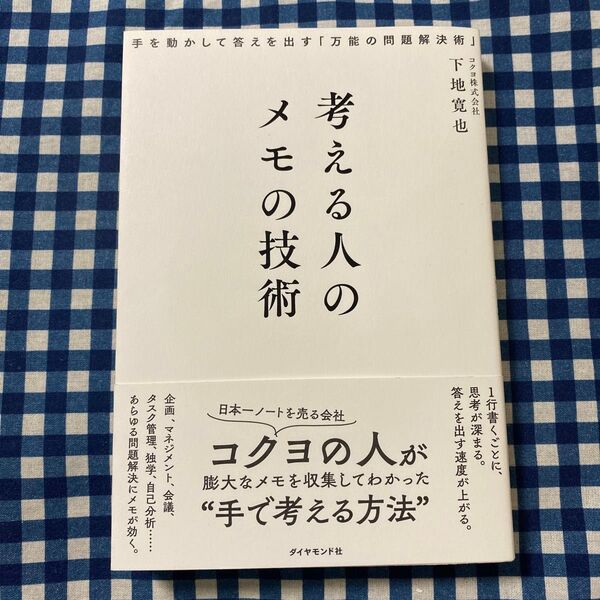 手を動かして答えを出す「万能の問題解決術」
コクヨ株式会社
下地寛也
考える人の
メモの技術
1行書くごとに、
思考が深まる。
答えを出す速度が上がる。
日本一ノートを売る会社
コクヨの人が
膨大なメモを収集してわかった
“手で考える方法”
企画、マネジメント、会議、
タスク管理、独学、自己分析……
あらゆる問題解決にメモが効く。
ダイヤモンド社